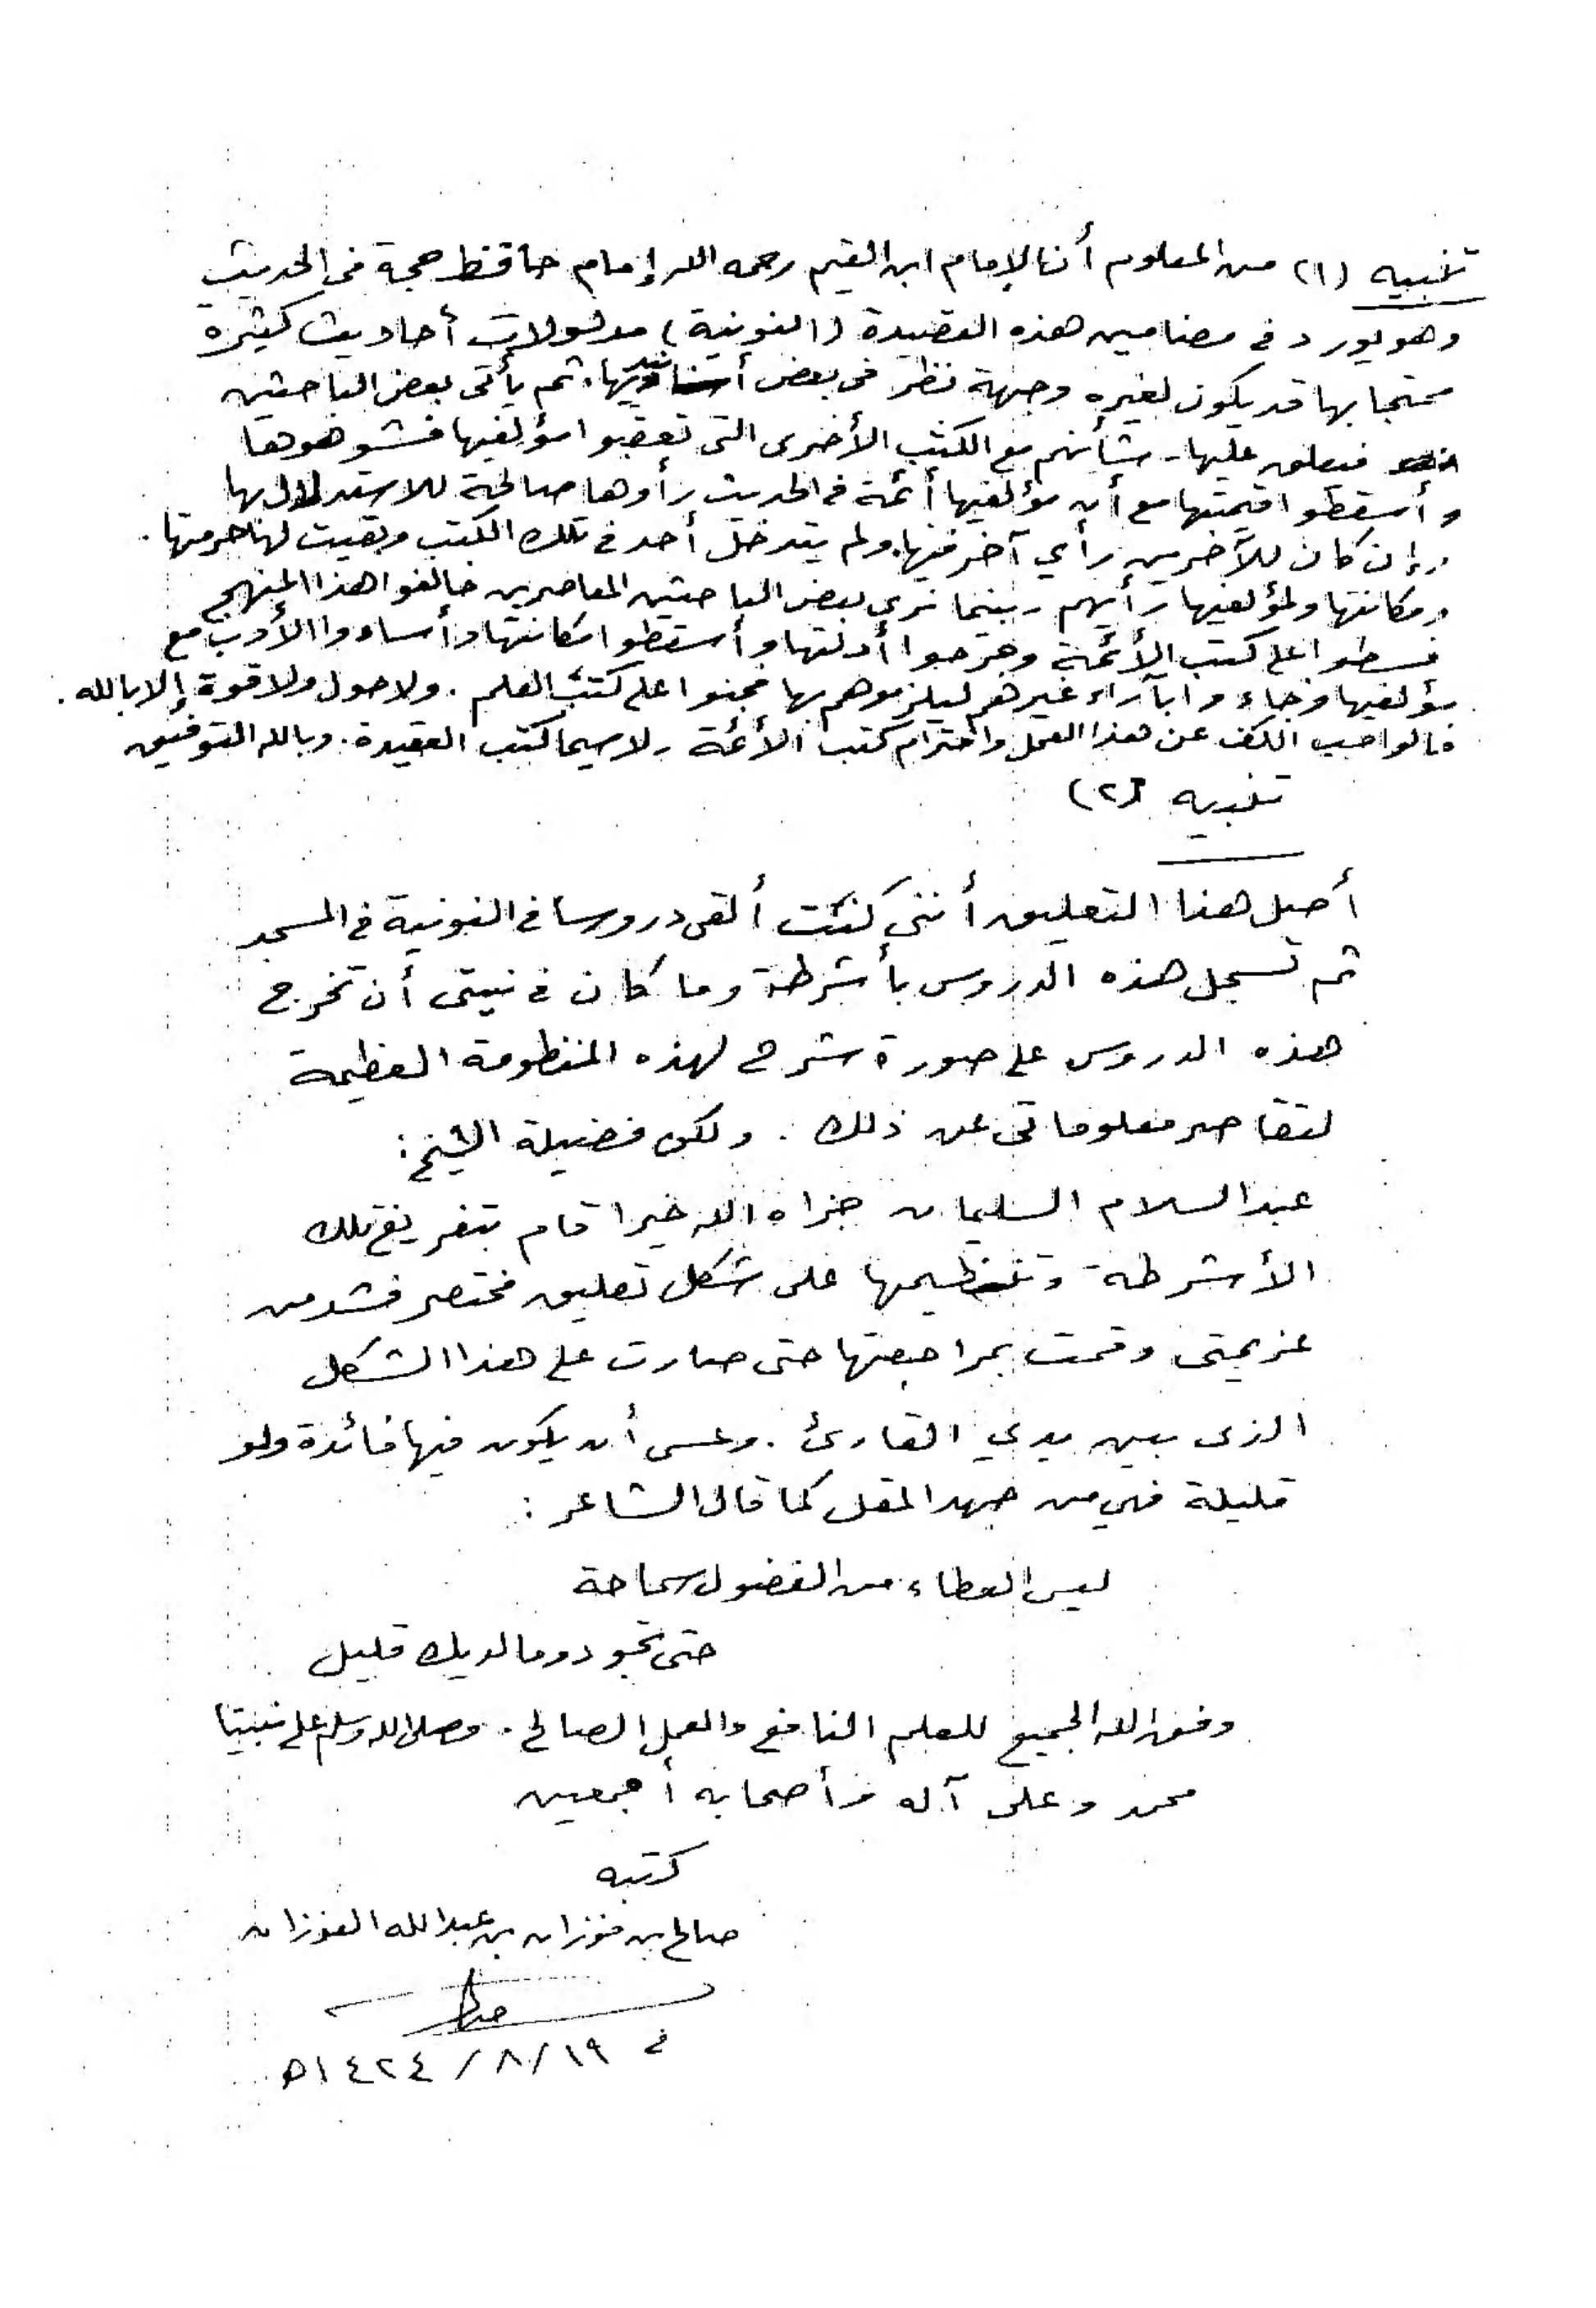 تنبيه (١) من المعلوم أن الإمام ابن القيم رحمه الله إمام حافظ حجة في الحديث
وهو يورد في مضامين هذه القصيدة (النونية) مدلولات أحاديث كثيرة
محتجا بها قد يكون لغيره وجهة نظر في بعض أسانيدها. ثم يأتي بعض الباحثين
فيعلق عليها - شأنهم مع الكتب الأخرى التي تعقبوا مؤلفيها فشوهوها
وأسقطوا قيمتها مع أن مؤلفيها أئمة في الحديث رأوها صالحة للاستدلال بها
وإن كان للآخرين رأي آخر فيها. ولم يتدخل أحد في تلك الكتب وبقيت لها حرمتها.
ومكانتها ولمؤلفيها رأيهم - بينما نرى بعض الباحثين المعاصرين خالفوا هذا المنهج
فسطوا على كتب الأئمة وجرحوا أدلتها وأسقطوا مكانتها وأساءوا الأدب مع
مؤلفيها وجاءوا بآراء غيرهم ليلزموهم بها فجنوا على كتب العلم. ولا حول ولا قوة إلا بالله.
فالواجب الكف عن هذا العمل واحترام كتب الأئمة ولا سيما كتب العقيدة. وبالله التوفيق
تنبيه (٢)
أصل هذا التعليق أنني كنت ألقي دروسا في النونية في المسجد
ثم تسجل هذه الدروس بأشرطة وما كان في نيتي أن تخرج
هذه الدروس على صورة شرح لهذه المنظومة العظيمة
لتقاصر معلوماتي عن ذلك. ولكن فضيلة الشيخ:
عبدالسلام السليمان جزاه الله خيرا قام بتفريغ تلك
الأشرطة وتنظيمها على شكل تعليق مختصر فشد من
عزيمتي وقمت بمراجعتها حتى صارت على هذا الشكل
الذي بين يدي القارئ. وعسى أن يكون فيها فائدة ولو
قليلة فهي من جهد المقل كما قال الشاعر:
ليس العطاء من الفضول سماحة
حتى تجود وما لديك قليل
وفق الله الجميع للعلم النافع والعمل الصالح. وصلى الله وسلم على نبينا
محمد وعلى آله وأصحابه أجمعين
كتبه
صالح بن فوزان بن عبدالله الفوزان
في ١٩/٨/١٤٢٤هـ